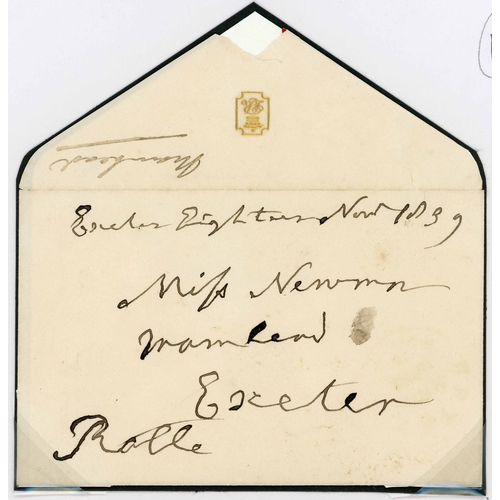 Mamhead
Exeter Eighteen Novr 1839
Miss Newman
Mamhead
Exeter
Rolle